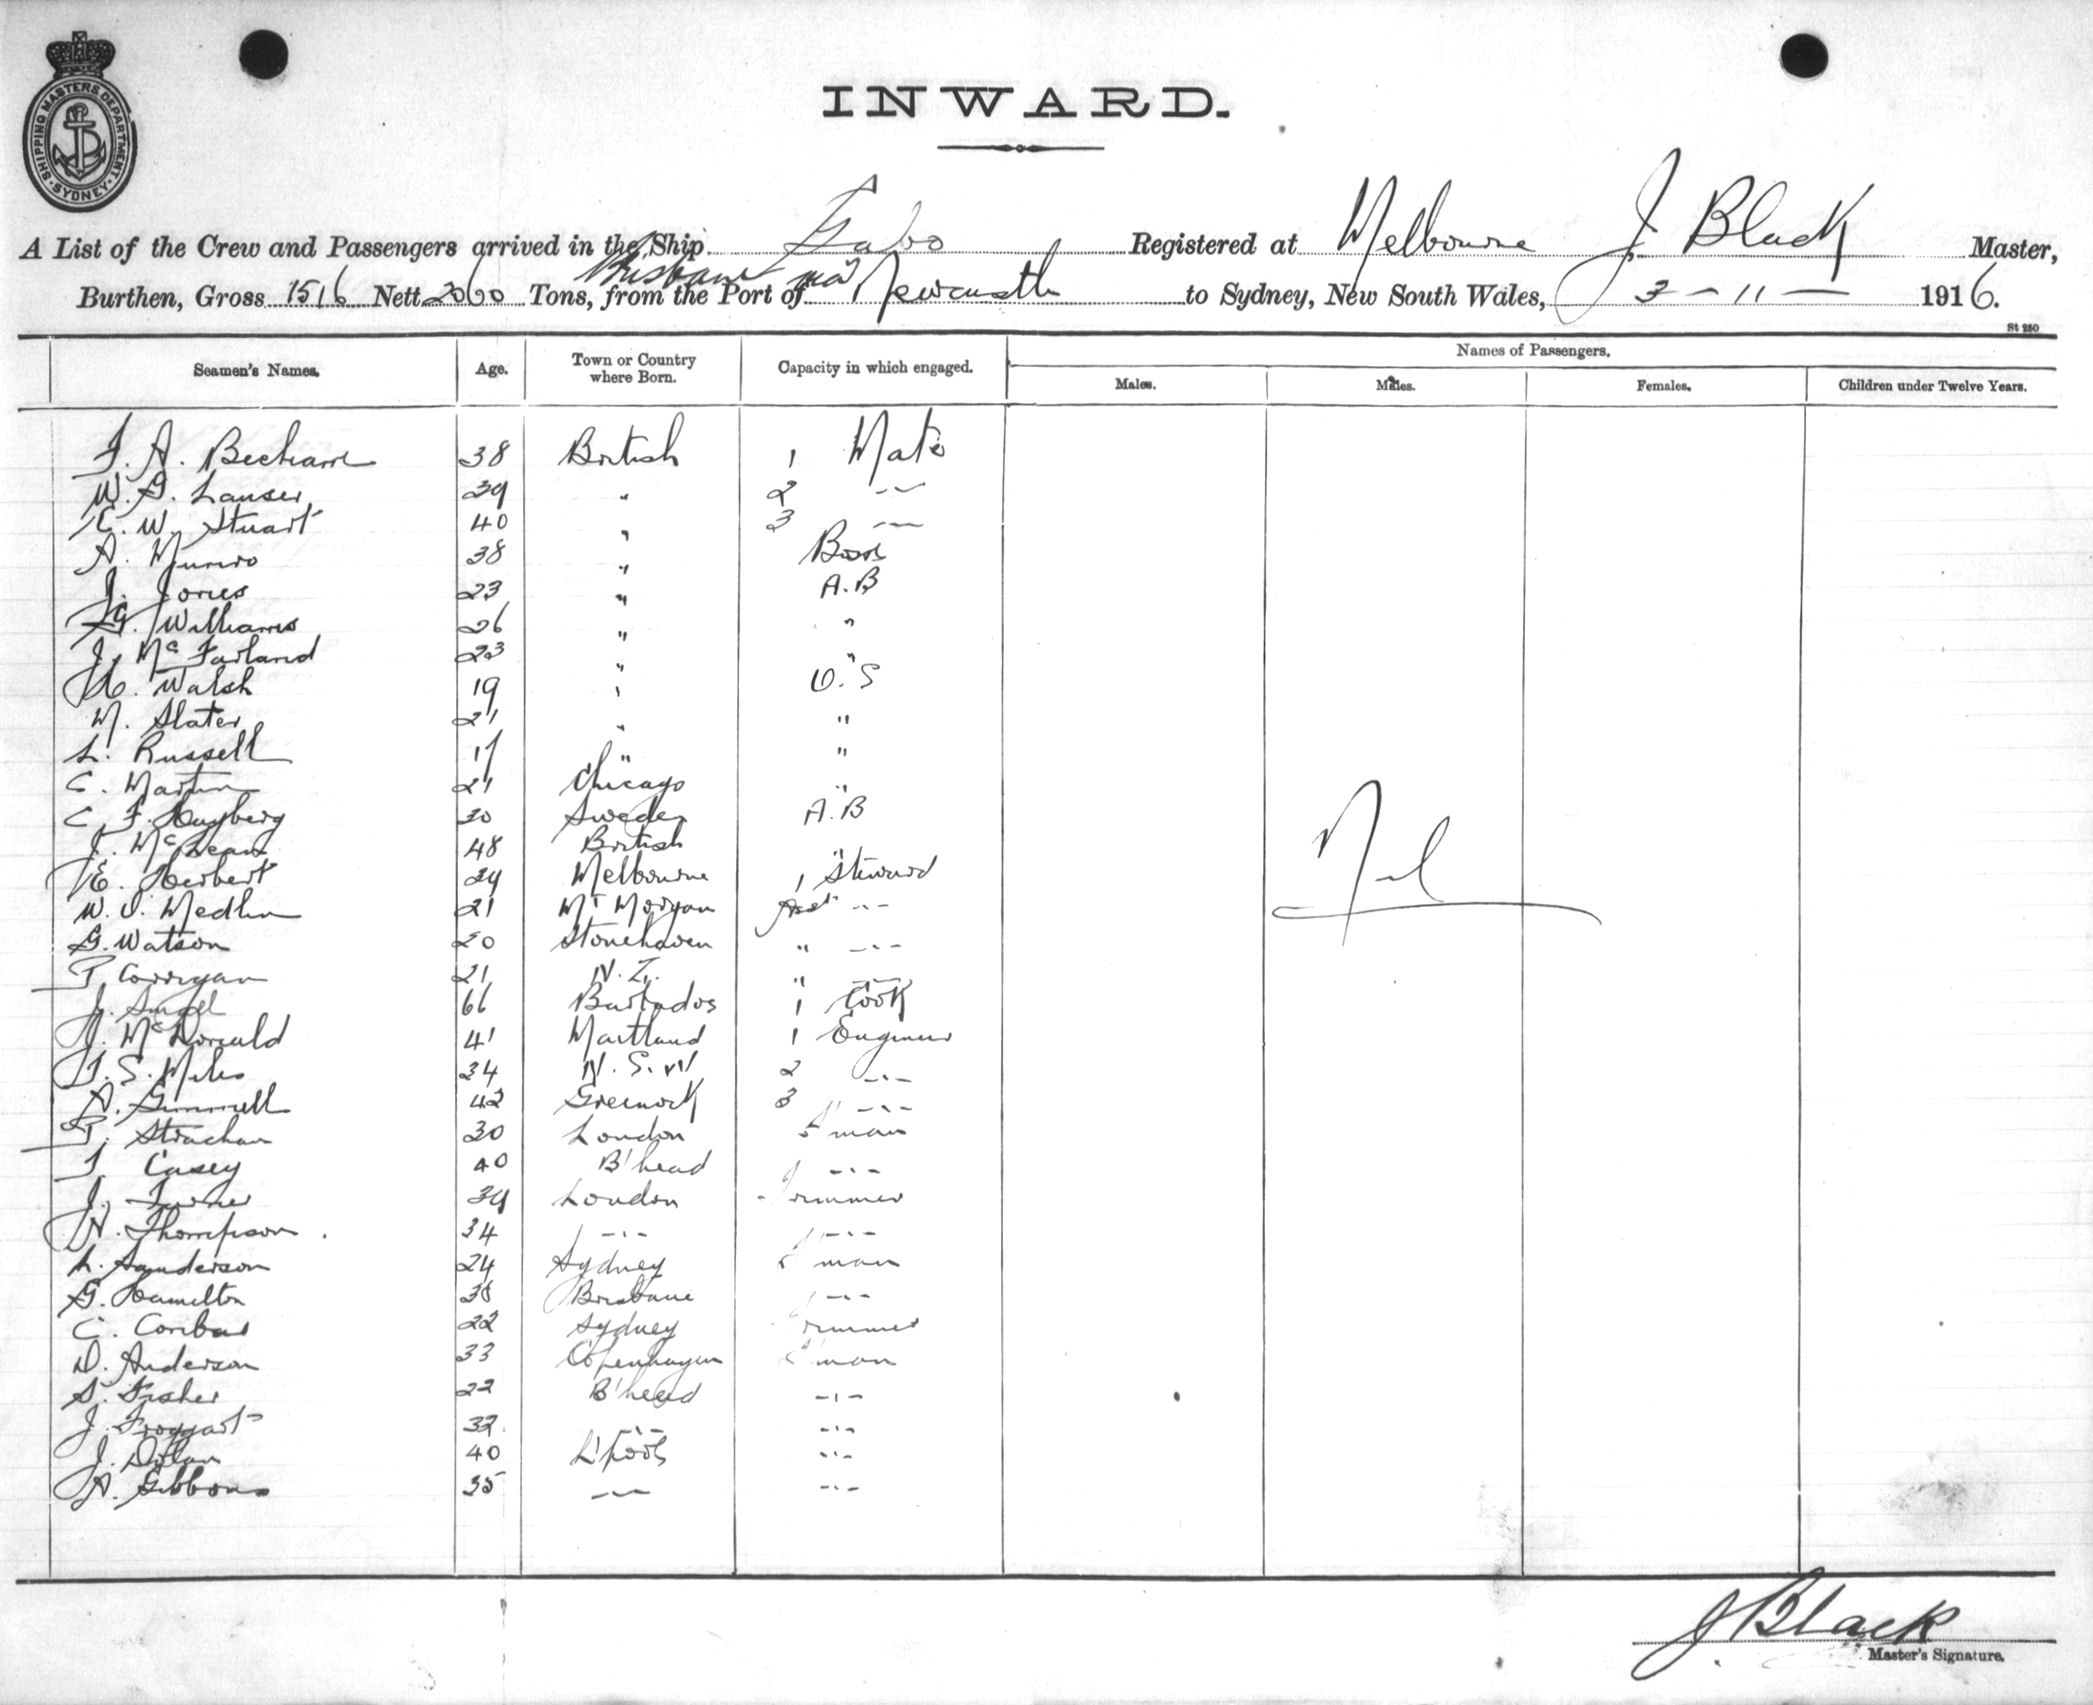 SHIPPING MASTERS DEPARTMENT
SYDNEY
INWARD.
A List of the Crew and Passengers arrived in the Ship Gabo Registered at Melbourne J. Black Master,
Burthen, Gross 1516 Nett 2060 Tons, from the Port of Brisbane via Newcastle to Sydney, New South Wales, 3-11- 1916.
St 250
Seamen's Names. Age. Town or Country where Born. Capacity in which engaged. Names of Passengers.
Males. Males. Females. Children under Twelve Years.
F. A. 38 British 1 Mate
W. G. 39 " 2 -"-
C. W. Stuart 40 " 3 -"-
A. Munro 38 " Bosn
J. Jones 23 " A.B
G. Williams 26 " "
J. McFarland 23 " "
Walsh 19 " O.S
M. Slater 21 " "
L. Russell 17 " "
C. Martin 21 Chicago "
C. F. Hugberg 30 Sweden A.B
J. McLean 48 British "
E. Herbert 34 Melbourne 1 Steward
W. J. Medlin 21 Mt Morgan Asst -"-
G. Watson 20 Stonehaven " -"-
P. Corrigan 21 N.Z. " -"-
J. Small 66 Barbados 1 Cook
J. McDonald 41 Maitland 1 Engineer
T. S. Miles 34 N.S.W 2 -"-
A. Gemmell 42 Greenock 3 -"-
P. Strachan 30 London F'man
T. Casey 40 B'head -"-
J. Turner 39 London Trimmer
H. Thompson. 34 -"- -"-
L. Sanderson 24 Sydney F'man
G. Hamilton 38 Brisbane -"-
C. 22 Sydney Trimmer
D. Anderson 33 Copenhagen F'man
S. Fisher 22 B'head -"-
J. Froggart 32 -"- -"-
J. Dolan 40 L'pool -"-
A. Gibbons 35 -"- -"-
Nil
J Black
Master's Signature.